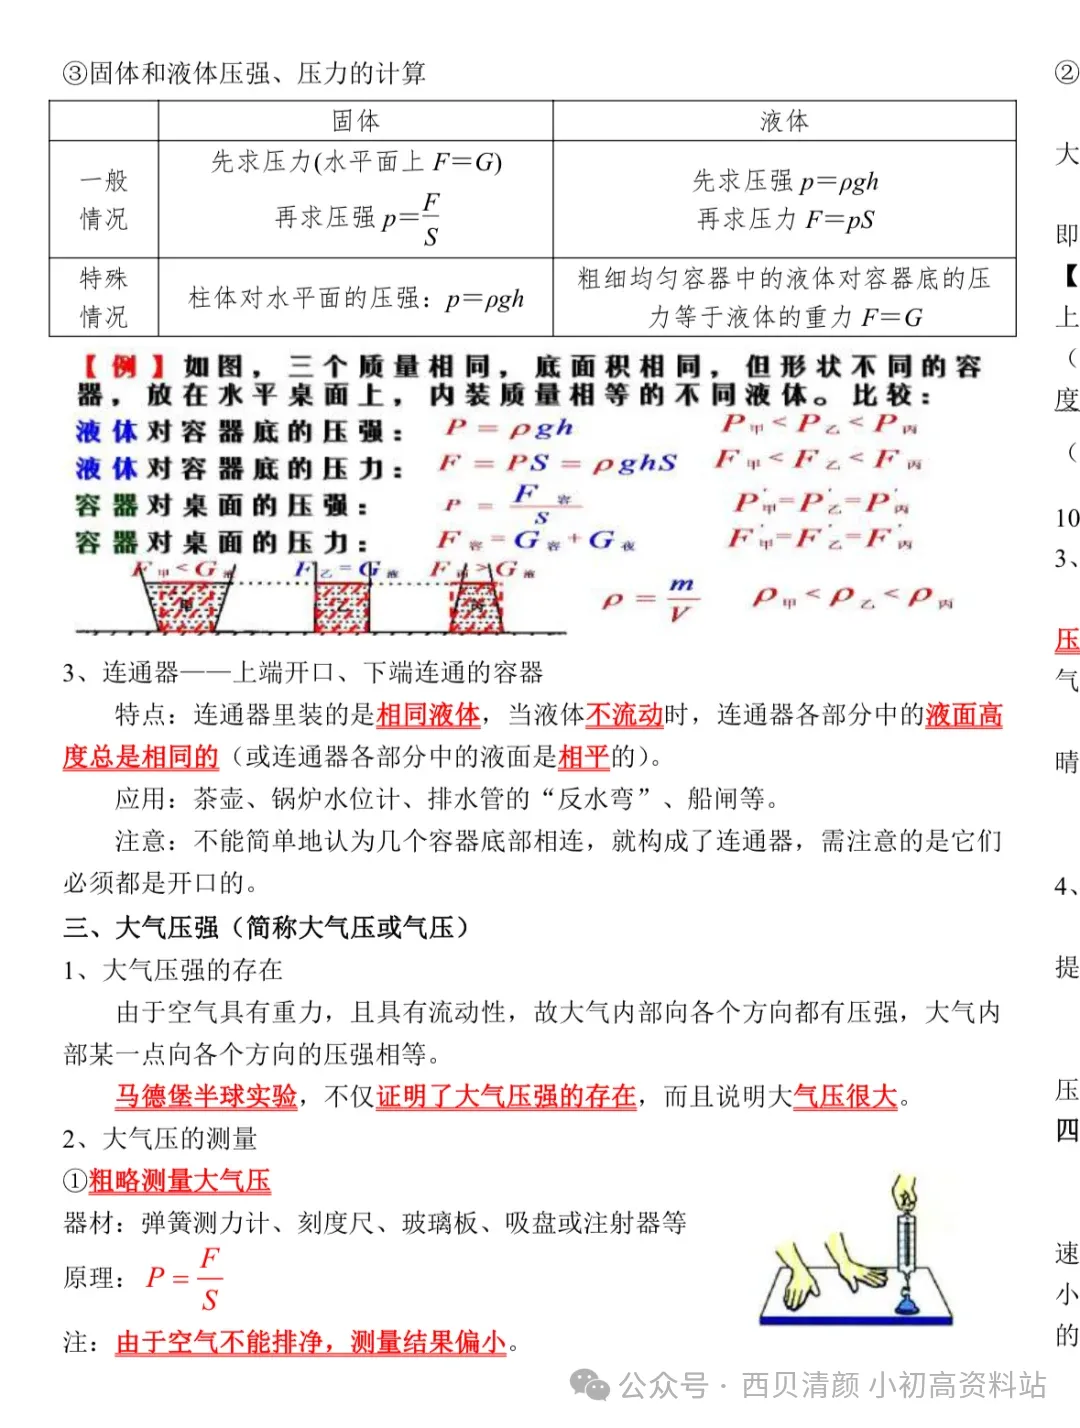 ③固体和液体压强、压力的计算
固体
液体
一般
情况
先求压力(水平面上 F＝G)
再求压强 p＝F/S
先求压强 p＝ρgh
再求压力 F＝pS
特殊
情况
柱体对水平面的压强：p＝ρgh
粗细均匀容器中的液体对容器底的压
力等于液体的重力 F＝G
【例】如图，三个质量相同，底面积相同，但形状不同的容
器，放在水平桌面上，内装质量相等的不同液体。比较：
液体对容器底的压强： P = ρgh P甲<P乙<P丙
液体对容器底的压力： F = PS = ρghS F甲<F乙<F丙
容器对桌面的压强： P = F容/S P'甲=P'乙=P'丙
容器对桌面的压力： F容=G容+G液 F'甲=F'乙=F'丙
F甲<G液 F乙=G液 F丙>G液
甲 乙 丙
ρ = m/V ρ甲<ρ乙<ρ丙
3、连通器——上端开口、下端连通的容器
特点：连通器里装的是相同液体，当液体不流动时，连通器各部分中的液面高
度总是相同的（或连通器各部分中的液面是相平的）。
应用：茶壶、锅炉水位计、排水管的“反水弯”、船闸等。
注意：不能简单地认为几个容器底部相连，就构成了连通器，需注意的是它们
必须都是开口的。
三、大气压强（简称大气压或气压）
1、大气压强的存在
由于空气具有重力，且具有流动性，故大气内部向各个方向都有压强，大气内
部某一点向各个方向的压强相等。
马德堡半球实验，不仅证明了大气压强的存在，而且说明大气压很大。
2、大气压的测量
①粗略测量大气压
器材：弹簧测力计、刻度尺、玻璃板、吸盘或注射器等
原理：P＝F/S
注：由于空气不能排净，测量结果偏小。
②
大
即
【
上
（
度
（
10
3、
压
气
晴
4、
提
压
四
速
小
的
公众号·西贝清颜 小初高资料站